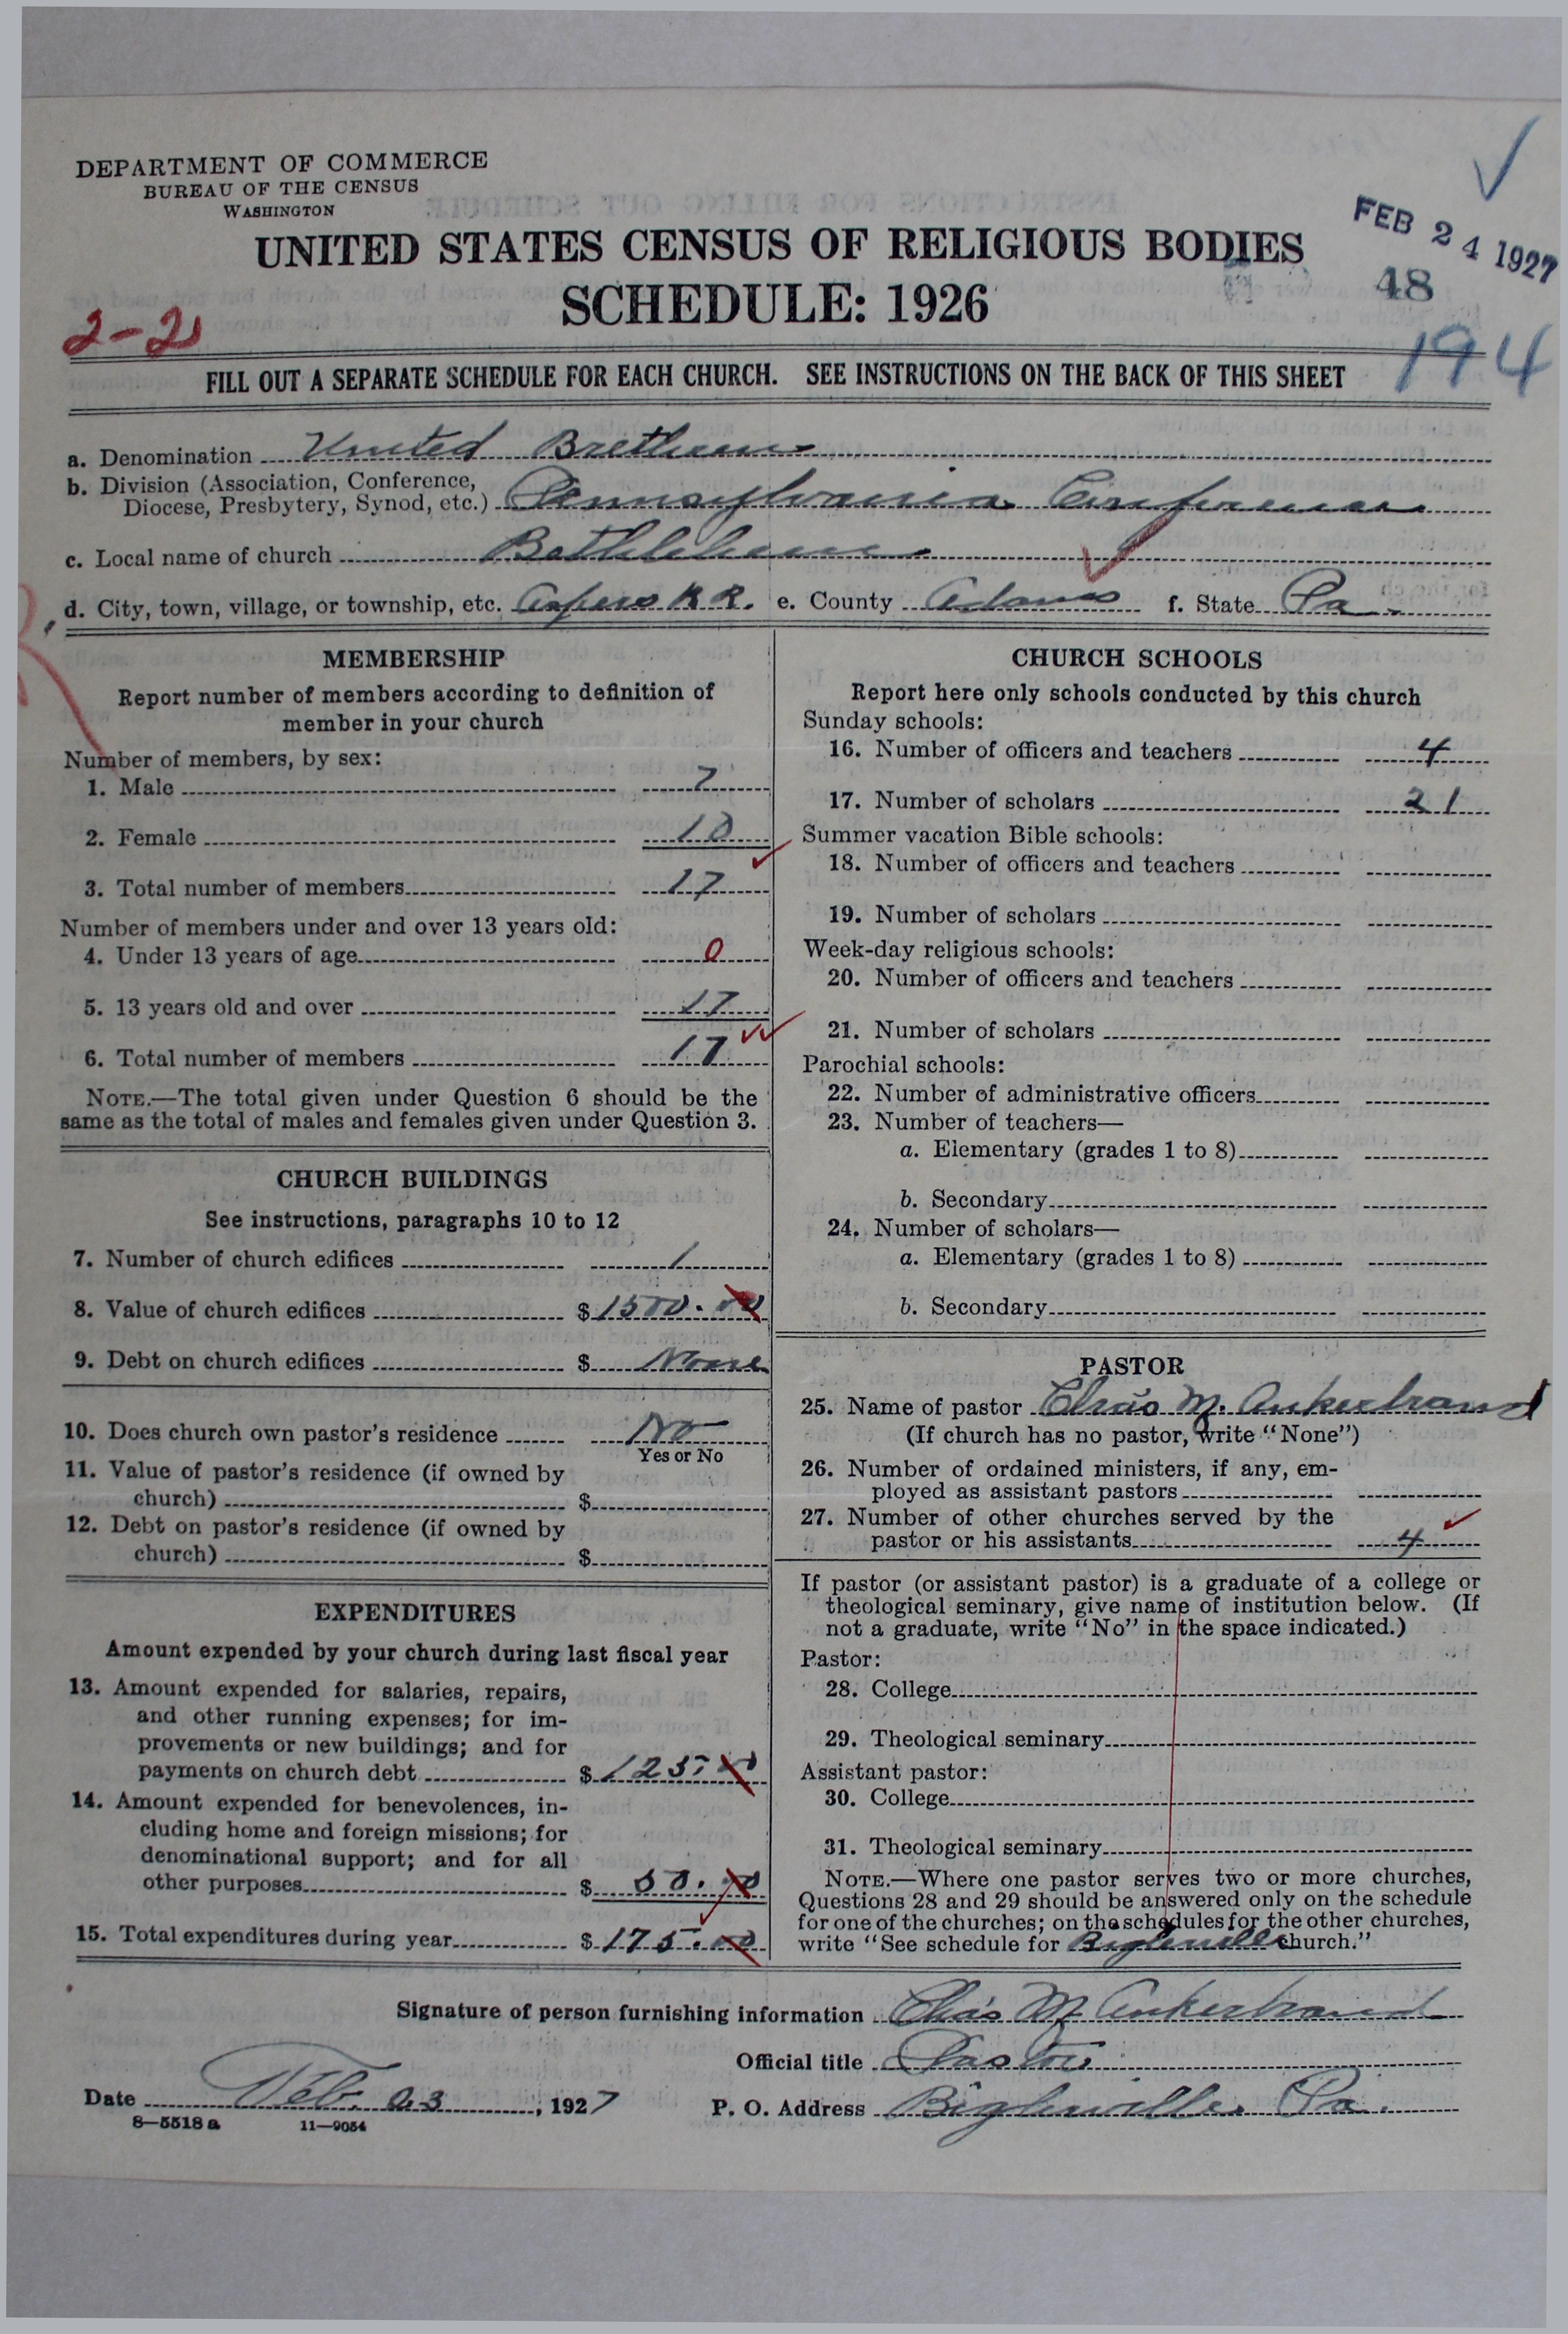 DEPARTMENT OF COMMERCE
BUREAU OF THE CENSUS
WASHINGTON
UNITED STATES CENSUS OF RELIGIOUS BODIES
SCHEDULE: 1926
FEB 24 1927
48
194
2-21
FILL OUT A SEPARATE SCHEDULE FOR EACH CHURCH. SEE INSTRUCTIONS ON THE BACK OF THIS SHEET
a. Denomination United Brethren
b. Division (Association, Conference,
Diocese, Presbytery, Synod, etc.) Pennsylvania Conference
c. Local name of church Bethlehem
d. City, town, village, or township, etc. Aspers R R. e. County Adams f. State Pa.
MEMBERSHIP
Report number of members according to definition of
member in your church
Number of members, by sex:
1. Male 7
2. Female 10
3. Total number of members 17
Number of members under and over 13 years old:
4. Under 13 years of age 0
5. 13 years old and over 17
6. Total number of members 17
NOTE.—The total given under Question 6 should be the
same as the total of males and females given under Question 3.
CHURCH BUILDINGS
See instructions, paragraphs 10 to 12
7. Number of church edifices 1
8. Value of church edifices $ 1500.00
9. Debt on church edifices $ None
10. Does church own pastor's residence No
Yes or No
11. Value of pastor's residence (if owned by
church) $
12. Debt on pastor's residence (if owned by
church) $
EXPENDITURES
Amount expended by your church during last fiscal year
13. Amount expended for salaries, repairs,
and other running expenses; for im-
provements or new buildings; and for
payments on church debt $ 125.00
14. Amount expended for benevolences, in-
cluding home and foreign missions; for
denominational support; and for all
other purposes $ 50.00
15. Total expenditures during year $ 175.00
CHURCH SCHOOLS
Report here only schools conducted by this church
Sunday schools:
16. Number of officers and teachers 4
17. Number of scholars 21
Summer vacation Bible schools:
18. Number of officers and teachers
19. Number of scholars
Week-day religious schools:
20. Number of officers and teachers
21. Number of scholars
Parochial schools:
22. Number of administrative officers
23. Number of teachers—
a. Elementary (grades 1 to 8)
b. Secondary
24. Number of scholars—
a. Elementary (grades 1 to 8)
b. Secondary
PASTOR
25. Name of pastor Chas M. Ankerbrand
(If church has no pastor, write "None")
26. Number of ordained ministers, if any, em-
ployed as assistant pastors
27. Number of other churches served by the
pastor or his assistants 4
If pastor (or assistant pastor) is a graduate of a college or
theological seminary, give name of institution below. (If
not a graduate, write "No" in the space indicated.)
Pastor:
28. College
29. Theological seminary
Assistant pastor:
30. College
31. Theological seminary
NOTE.—Where one pastor serves two or more churches,
Questions 28 and 29 should be answered only on the schedule
for one of the churches; on the schedules for the other churches,
write "See schedule for Biglerville church."
Signature of person furnishing information Chas M Ankerbrand
Official title Pastor
Date Feb. 23, 1927 P. O. Address Biglerville Pa.
8—5518 a 11—9054